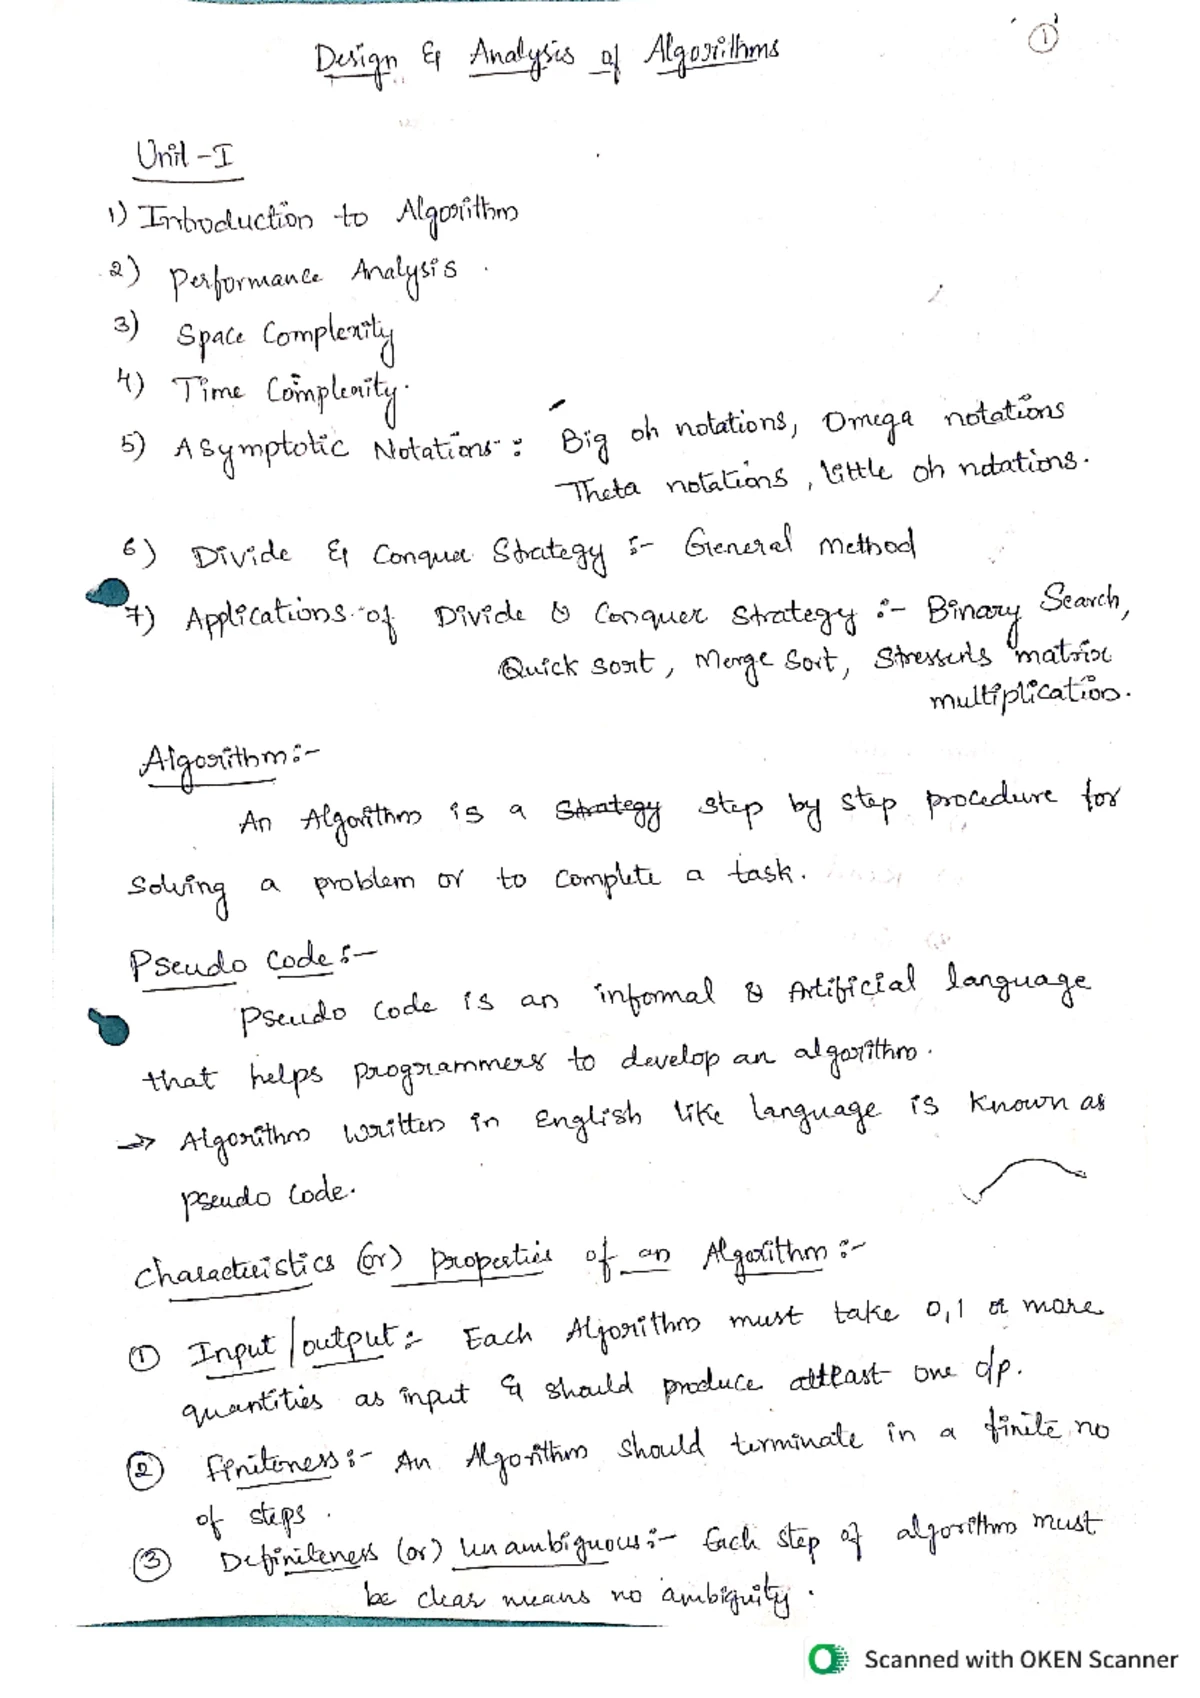 Design & Analysis of Algorithms
1
Unit -I
1) Introduction to Algorithm
2) Performance Analysis.
3) Space Complexity
4) Time Complexity.
5) Asymptotic Notations : Big oh notations, Omega notations
Theta notations, little oh notations.
6) Divide & Conquer Strategy :- General method
7) Applications of Divide & Conquer Strategy :- Binary Search,
Quick sort, Merge Sort, Stressens matrix
multiplication.
Algorithm :-
An Algorithm is a Strategy step by step procedure for
solving a problem or to complete a task.
Pseudo Code :-
Pseudo Code is an informal & Artificial language
that helps programmers to develop an algorithm.
→ Algorithm written in English like language is known as
pseudo Code.
Characteristics (or) properties of an Algorithm :-
① Input / output :- Each Algorithm must take 0,1 or more
quantities as input & should produce attleast one o/p.
② Finiteness :- An Algorithm should terminate in a finite no
of steps.
③ Definiteness (or) Unambiguous :- Each step of algorithm must
be clear means no ambiguity.
Scanned with OKEN Scanner